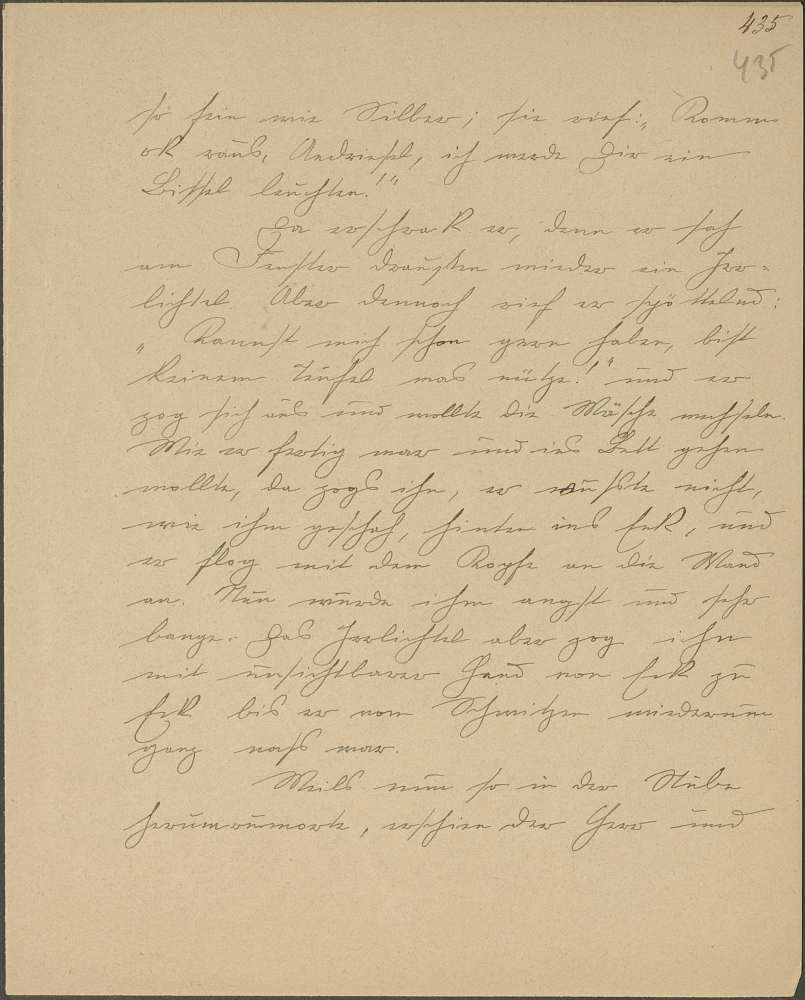 435
435
so fein wie Silber; sie rief: „Komm
ok raus, Andriesel, ich werde Dir ein
Bissel leuchten!"
Da erschrak er, denn er sah
am Fenster draußen wieder ein Irr-
lichtel. Aber dennoch rief er spöttelnd:
„Kannst mich schon gern haben, bist
keinem Teufel was nütze!" und er
zog sich aus und wollte die Wäsche wechseln.
Wie er fertig war und ins Bett gehen
wollte, da zogs ihn, er wußte nicht,
wie ihm geschah, hinten ins Eck, und
er flog mit dem Kopfe an die Wand
an. Nun wurde ihm angst und sehr
bange. Das Irrlichtel aber zog ihn
mit unsichtbarer Hand von Eck zu
Eck bis er vom Schwitzen wiederum
ganz naß war.
Weils nun so in der Stube
herumrumorte, erschien der Herr und